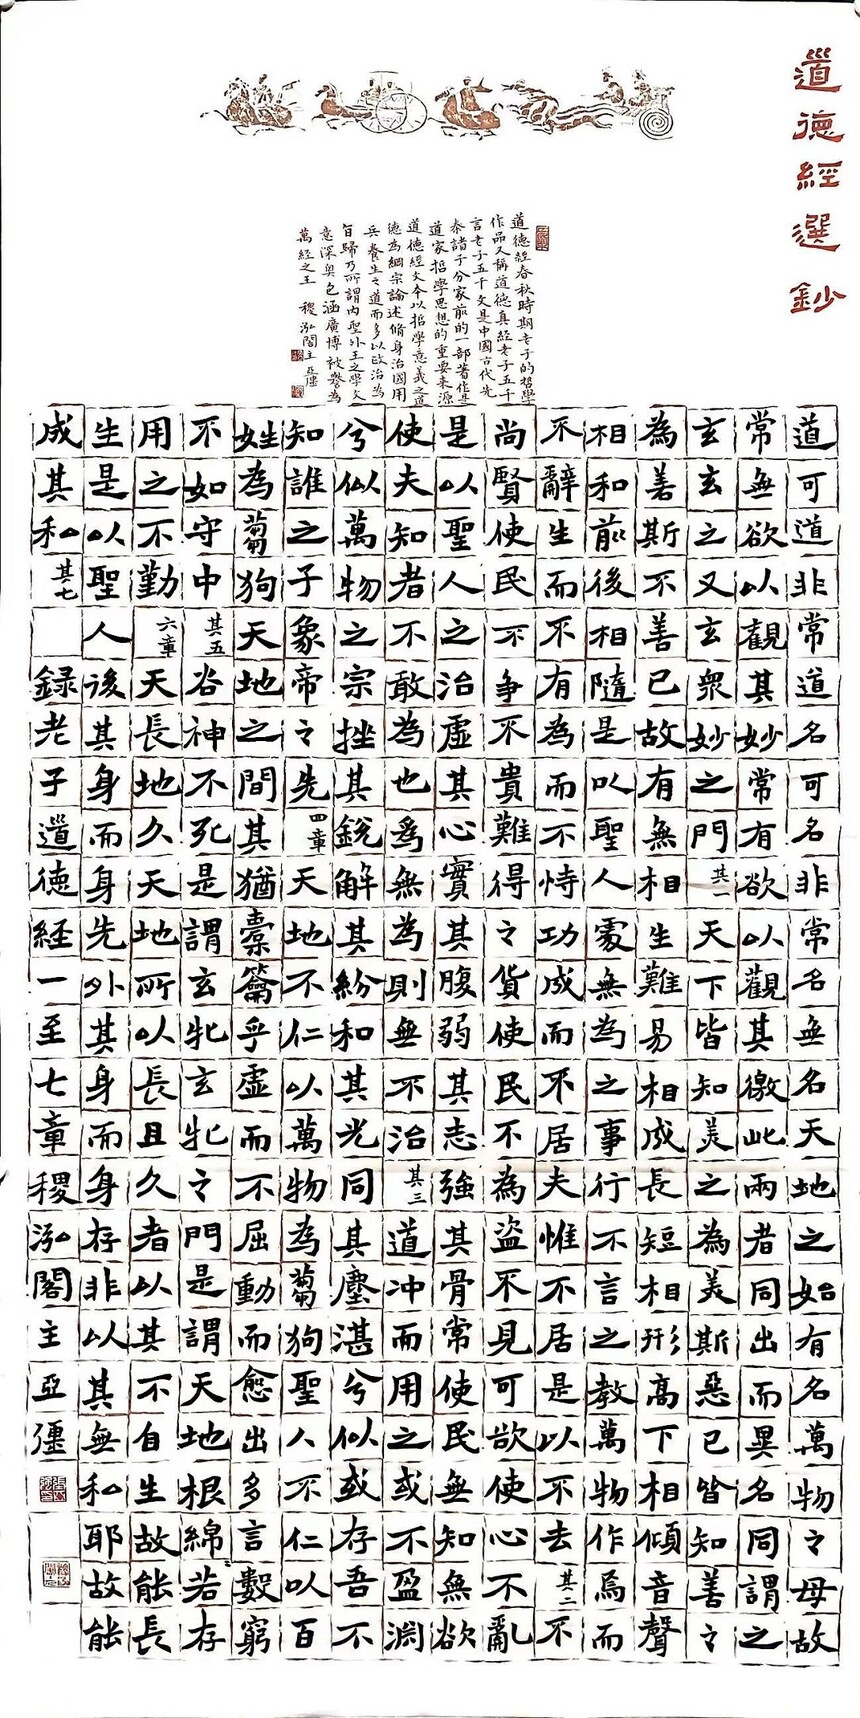 道德經選鈔
道德經春秋時期老子的哲學
作品又稱道德真經老子五千
言老子五千文是中國古代先
秦諸子分家前的一部著作是
道家哲學思想的重要來源
道德經文本以哲學意義之道
德為綱宗論述脩身治國用
兵養生之道而多以政治為
旨歸乃所謂內聖外王之學文
意深奧包涵廣博被譽為
萬經之王 稷泓閣主亞彊
道可道非常道名可名非常名無名天地之始有名萬物之母故
常無欲以觀其妙常有欲以觀其徼此兩者同出而異名同謂之
玄玄之又玄眾妙之門其一天下皆知美之為美斯惡已皆知善之
為善斯不善已故有無相生難易相成長短相形高下相傾音聲
相和前後相隨是以聖人處無為之事行不言之教萬物作焉而
不辭生而不有為而不恃功成而不居夫惟不居是以不去其二不
尚賢使民不爭不貴難得之貨使民不為盜不見可欲使心不亂
是以聖人之治虛其心實其腹弱其志強其骨常使民無知無欲
使夫知者不敢為也為無為則無不治其三道冲而用之或不盈淵
兮似萬物之宗挫其銳解其紛和其光同其塵湛兮似或存吾不
知誰之子象帝之先四章天地不仁以萬物為芻狗聖人不仁以百
姓為芻狗天地之間其猶橐籥乎虛而不屈動而愈出多言數窮
不如守中其五谷神不死是謂玄牝玄牝之門是謂天地根綿々若存
用之不勤六章天長地久天地所以長且久者以其不自生故能長
生是以聖人後其身而身先外其身而身存非以其無私耶故能
成其私其七 錄老子道德經一至七章稷泓閣主亞彊